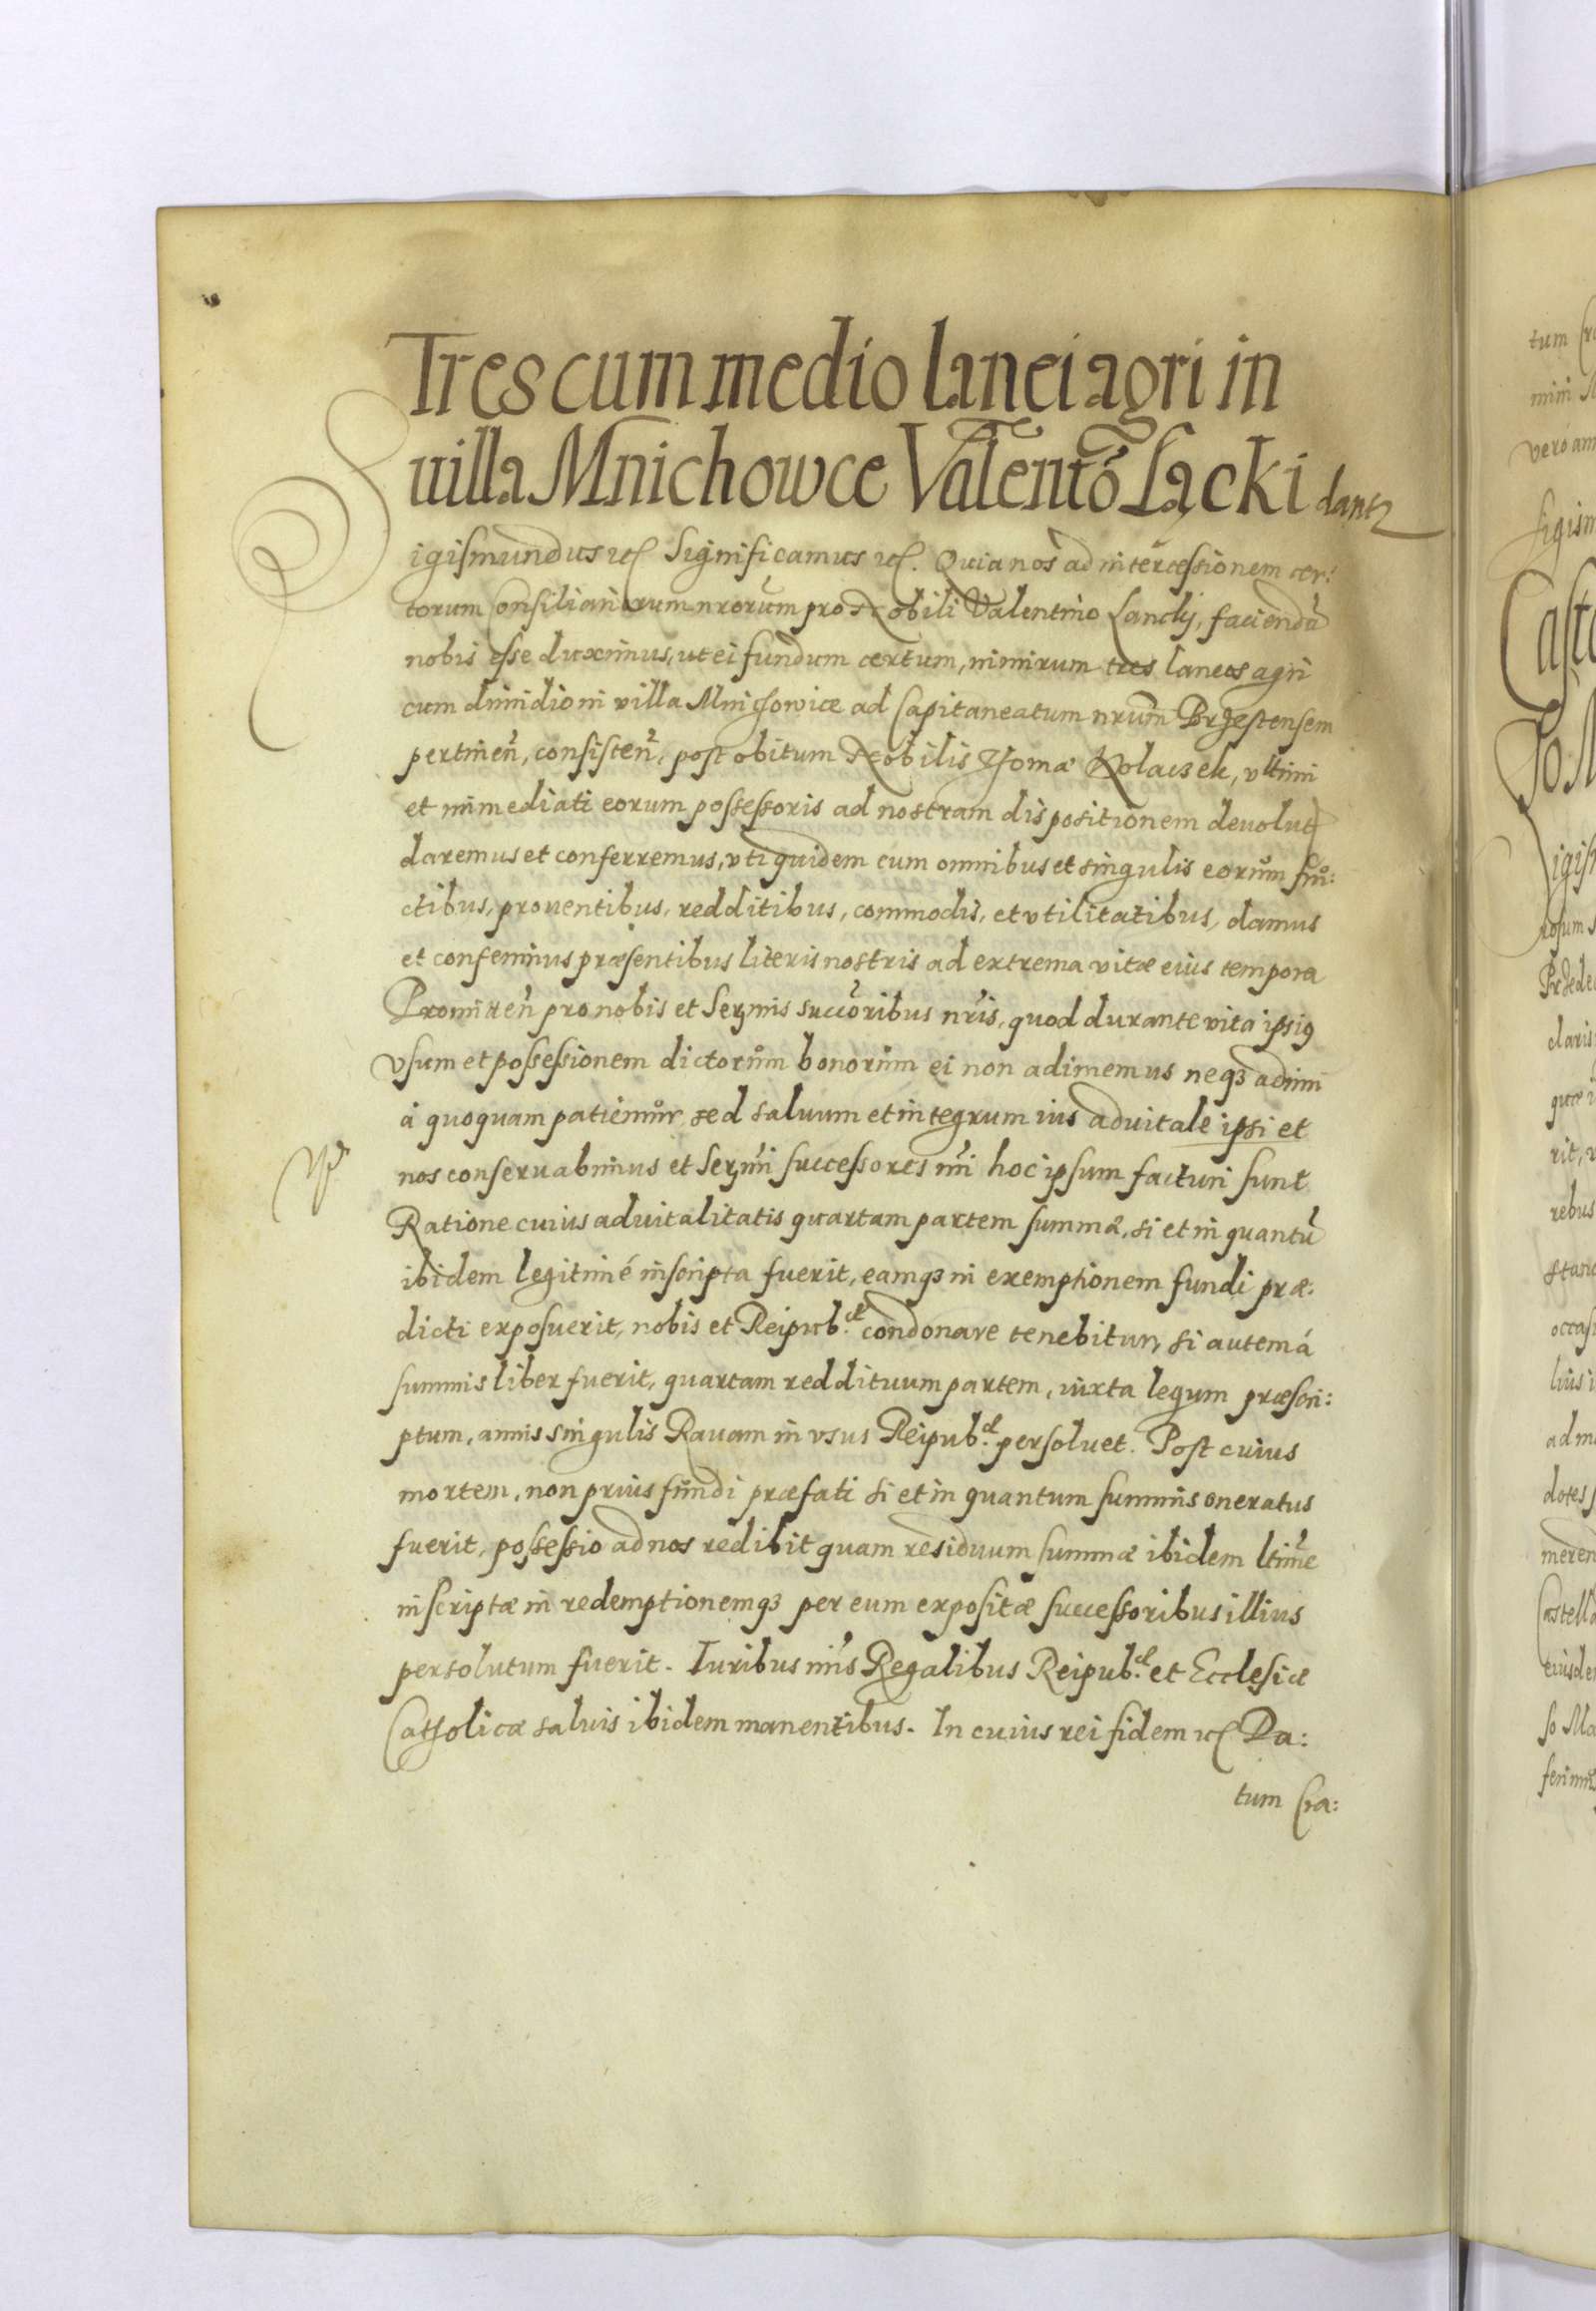 Tres cum medio lanei agri in
uilla Mnichowce Valento Łącki dantz
Sigismundus etc Significamus etc. Quia nos ad intercessionem cer:
torum Consiliariorum nrorum pro Nobili Valentino Lancki, faciendū
nobis esse duximus, ut ei fundum certum, nimirum tres laneos agri
cum dimidio in villa Mnichowice ad Capitaneatum nrum Brzestensem
pertinen, consisten, post obitum Nobilis Thomæ Kolaczek, vltimi
et immediati eorum possessoris ad nostram dispositionem deuolut
daremus et conferremus, vti quidem cum omnibus et singulis eorum fru:
ctibus, prouentibus, redditibus, commodis, et vtilitatibus, damus
et conferimus præsentibus literis nostris ad extrema vitæ eius tempora
Promitten pro nobis et Sermis succoribus nris, quod durante vita ipsius
vsum et possessionem dictorum bonorum ei non adimemus neqз adimi
à quoquam patiemur sed saluum et integrum ius aduitale ipsi et
nos conseruabimus et Sermi successores nri hoc ipsum facturi sunt
Ratione cuius aduitalitatis quartam partem summæ, si et in quantū
ibidem legitimé inscripta fuerit, eamqз in exemptionem fundi præ:
dicti exposuerit, nobis et Reipub.cæ condonare tenebitur, si autem á
summis liber fuerit, quartam reddituum partem, iuxta legum præscri:
ptum, annis singulis Rauam in vsus Reipub.cæ persoluet. Post cuius
mortem, non prius fundi præfati si et in quantum summis oneratus
fuerit, possessio ad nos redibit quam residuum summæ ibidem ltime
inscriptæ in redemptionemqз per eum expositæ successoribus illius
persolutum fuerit. Iuribus nris Regalibus Reipub.cæ et Ecclesiæ
Catholicæ saluis ibidem manentibus. In cuius rei fidem etc Da:
tum Cra: